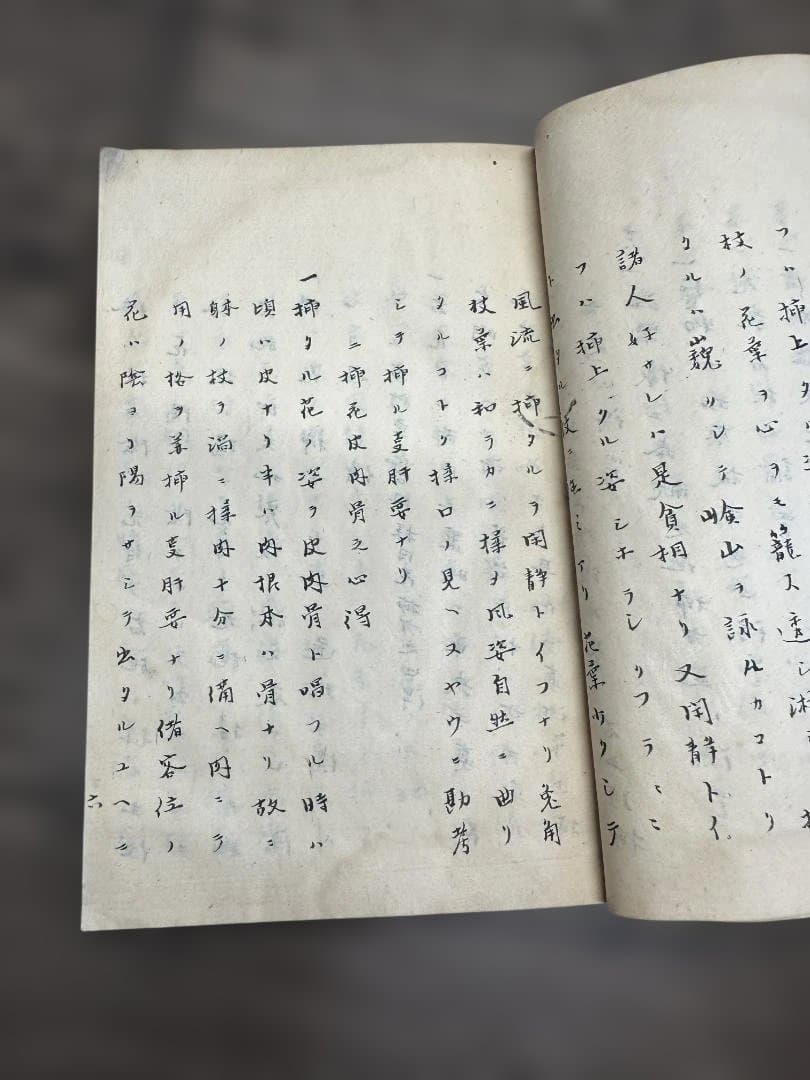 フハ挿上タル
枝ノ花葉ヲ心ヲモ籠ス透シ淋
クルハ巍リシテ嶮山ヲ詠ルカコトリ
諸人好サレハ是貧相ナリ又閑静トイ
フハ挿上タル姿シホラシリフラニ
花葉少クシテ
風流ニ挿タルヲ閑静トイフナリ兎角
枝葉ハ和ラカニ揉ヲ風姿自然ニ曲リ
タルコトリ揉口ノ見ヘヌヤウニ勘考
シテ挿ル事肝要ナリ
ニ挿花皮肉骨之心得
一挿タル花ノ姿ヲ皮肉骨ト唱フル時ハ
頃ハ皮ナリ半ハ肉根本ハ骨ナリ故ニ
躰ノ枝ヲ溜ニ揉肉十分ニ備ヘ内ニテ
用ノ格ヲ兼挿ル事肝要ナリ偖客位ノ
花ハ陰ヨリ陽ヲサシテ出タルユヘニ
六